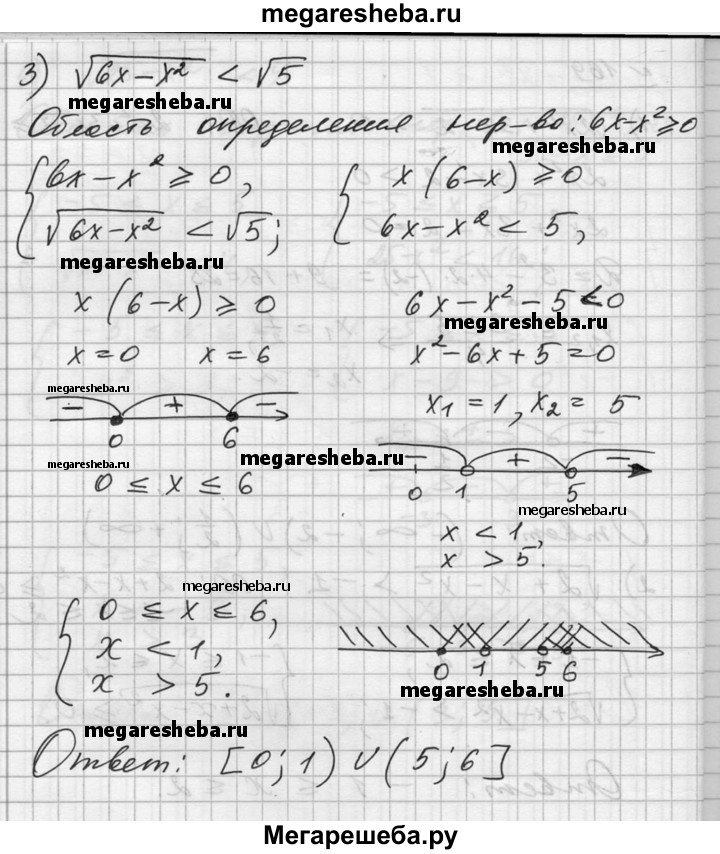 megaresheba.ru
3) √(6x-x²) < √5
megaresheba.ru
Область определения нер-во: 6x-x² ≥ 0
megaresheba.ru
{ 6x-x² ≥ 0, { x(6-x) ≥ 0
√(6x-x²) < √5; 6x-x² < 5,
megaresheba.ru
x(6-x) ≥ 0 6x-x²-5 < 0
megaresheba.ru
x=0 x=6 x²-6x+5=0
megaresheba.ru
x₁=1, x₂= 5
- + -
0 6
- + -
megaresheba.ru megaresheba.ru
0 ≤ x ≤ 6 0 1 5
megaresheba.ru
x < 1,
x > 5.
megaresheba.ru
{ 0 ≤ x ≤ 6,
x < 1,
x > 5.
0 1 5 6
megaresheba.ru
megaresheba.ru
Ответ: [0; 1) ∪ (5; 6]
Мегарешеба.ру